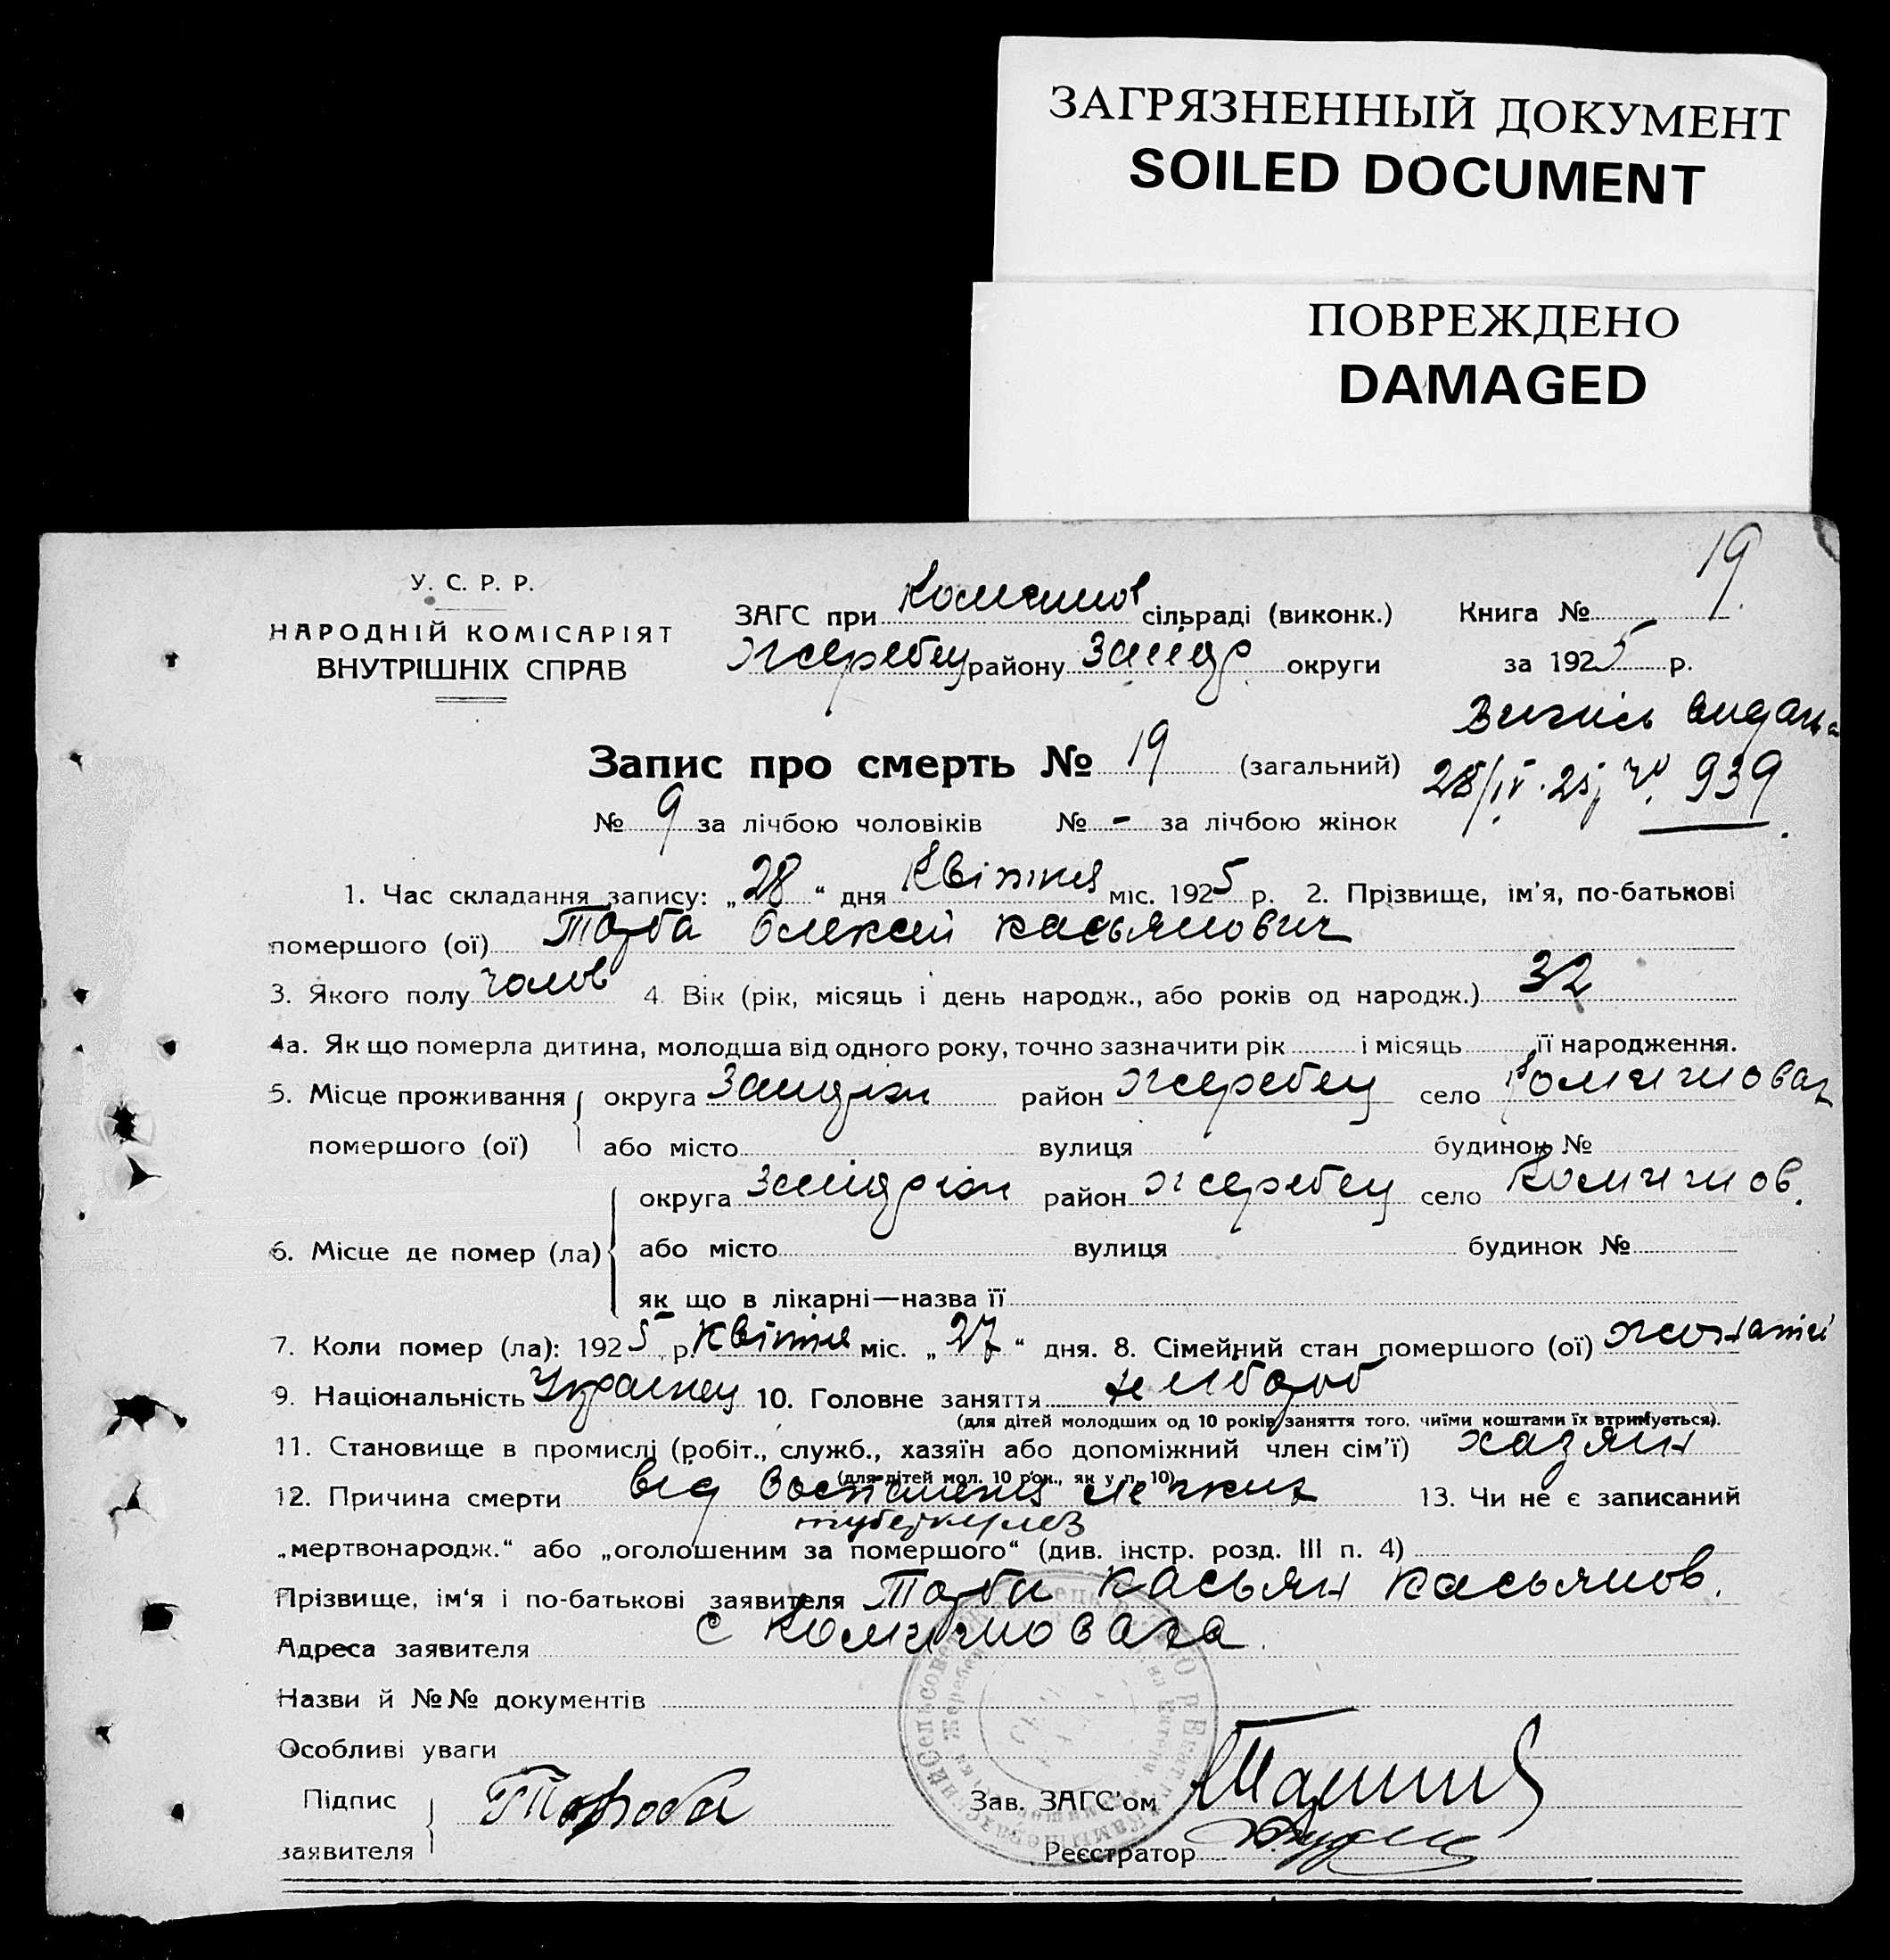 ЗАГРЯЗНЕННЫЙ ДОКУМЕНТ
SOILED DOCUMENT
ПОВРЕЖДЕНО
DAMAGED
19
У. С. Р. Р.
НАРОДНІЙ КОМІСАРІЯТ
ВНУТРІШНІХ СПРАВ
ЗАГС при сільраді (виконк.) Книга № 
Жеребец району Запор округи за 1925 р.
Запис про смерть № 19 (загальний)
28/IV.25 939
№ 9 за лічбою чоловіків № - за лічбою жінок
1. Час складання запису: „28“ дня Квітня міс. 1925 р. 2. Прізвище, ім'я, по-батькові
помершого (ої) Торба Олексій Касьянович
3. Якого полу чолов 4. Вік (рік, місяць і день народж., або років од народж.) 32
4а. Як що померла дитина, молодша від одного року, точно зазначити рік і місяць її народження.
5. Місце проживання округа район Жеребец село
помершого (ої) або місто вулиця будинок №
округа район Жеребец село
6. Місце де помер (ла) або місто вулиця будинок №
як що в лікарні—назва її
7. Коли помер (ла): 1925 р. Квітня міс. „27“ дня. 8. Сімейний стан помершого (ої) жонатий
9. Національність Украінец 10. Головне заняття хлібороб
(для дітей молодших од 10 років заняття того, чиїми коштами їх втримується).
11. Становище в промислі (робіт., служб., хазяїн або допоміжний член сім'ї) хазяин
(для дітей мол. 10 рок., як у п. 10)
12. Причина смерти від 13. Чи не є записаний
туберкульоз
„мертвонародж.“ або „оголошеним за помершого“ (див. інстр. розд. III п. 4)
Прізвище, ім'я і по-батькові заявителя Торба Касьян Касьянов.
Адреса заявителя с
Назви й №№ документів
Особливі уваги
Підпис Зав. ЗАГС'ом
заявителя Реєстратор